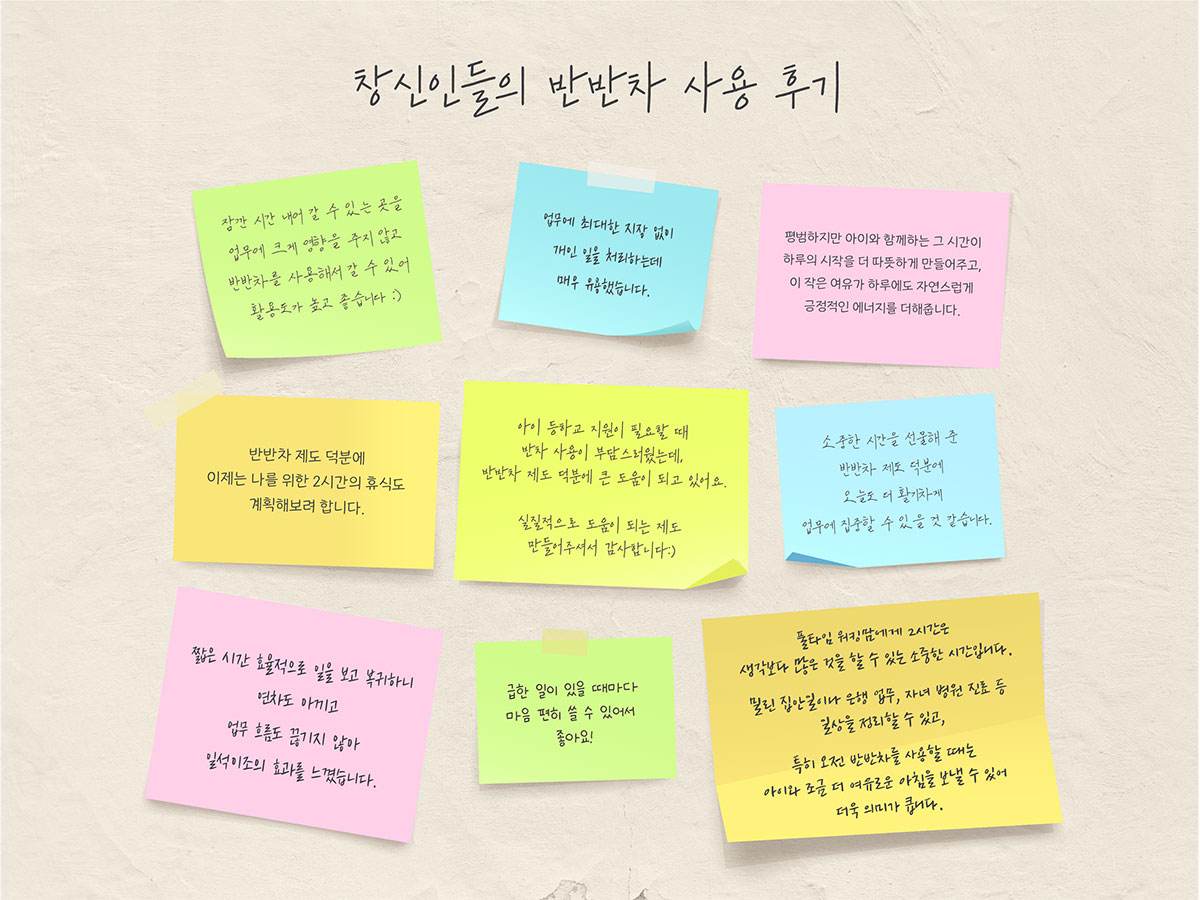 창신인들의 반반차 사용 후기
잠깐 시간 내어 갈 수 있는 곳을
업무에 크게 영향을 주지 않고
반반차를 사용해서 갈 수 있어
활용도가 높고 좋습니다 :)
업무에 최대한 지장 없이
개인 일을 처리하는데
매우 유용했습니다.
평범하지만 아이와 함께하는 그 시간이
하루의 시작을 더 따뜻하게 만들어주고,
이 작은 여유가 하루에도 자연스럽게
긍정적인 에너지를 더해줍니다.
반반차 제도 덕분에
이제는 나를 위한 2시간의 휴식도
계획해보려 합니다.
아이 등하교 지원이 필요할 때
반차 사용이 부담스러웠는데,
반반차 제도 덕분에 큰 도움이 되고 있어요.
실질적으로 도움이 되는 제도
만들어주셔서 감사합니다:)
소중한 시간을 선물해 준
반반차 제도 덕분에
오늘도 더 활기차게
업무에 집중할 수 있을 것 같습니다.
짧은 시간 효율적으로 일을 보고 복귀하니
연차도 아끼고
업무 흐름도 끊기지 않아
일석이조의 효과를 느꼈습니다.
급한 일이 있을 때마다
마음 편히 쓸 수 있어서
좋아요!
풀타임 워킹맘에게 2시간은
생각보다 많은 것을 할 수 있는 소중한 시간입니다.
밀린 집안일이나 은행 업무, 자녀 병원 진료 등
일상을 정리할 수 있고,
특히 오전 반반차를 사용할 때는
아이와 조금 더 여유로운 아침을 보낼 수 있어
더욱 의미가 큽니다.